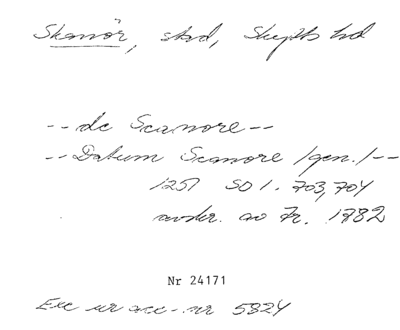 Skanör, stad, Skytts hd
--de Scanore--
--Datum Scanore /gen./--
1251 SD 1. 703, 704
avskr. av Fr. 1782
Nr 24171
Exc ur acc-nr 5824